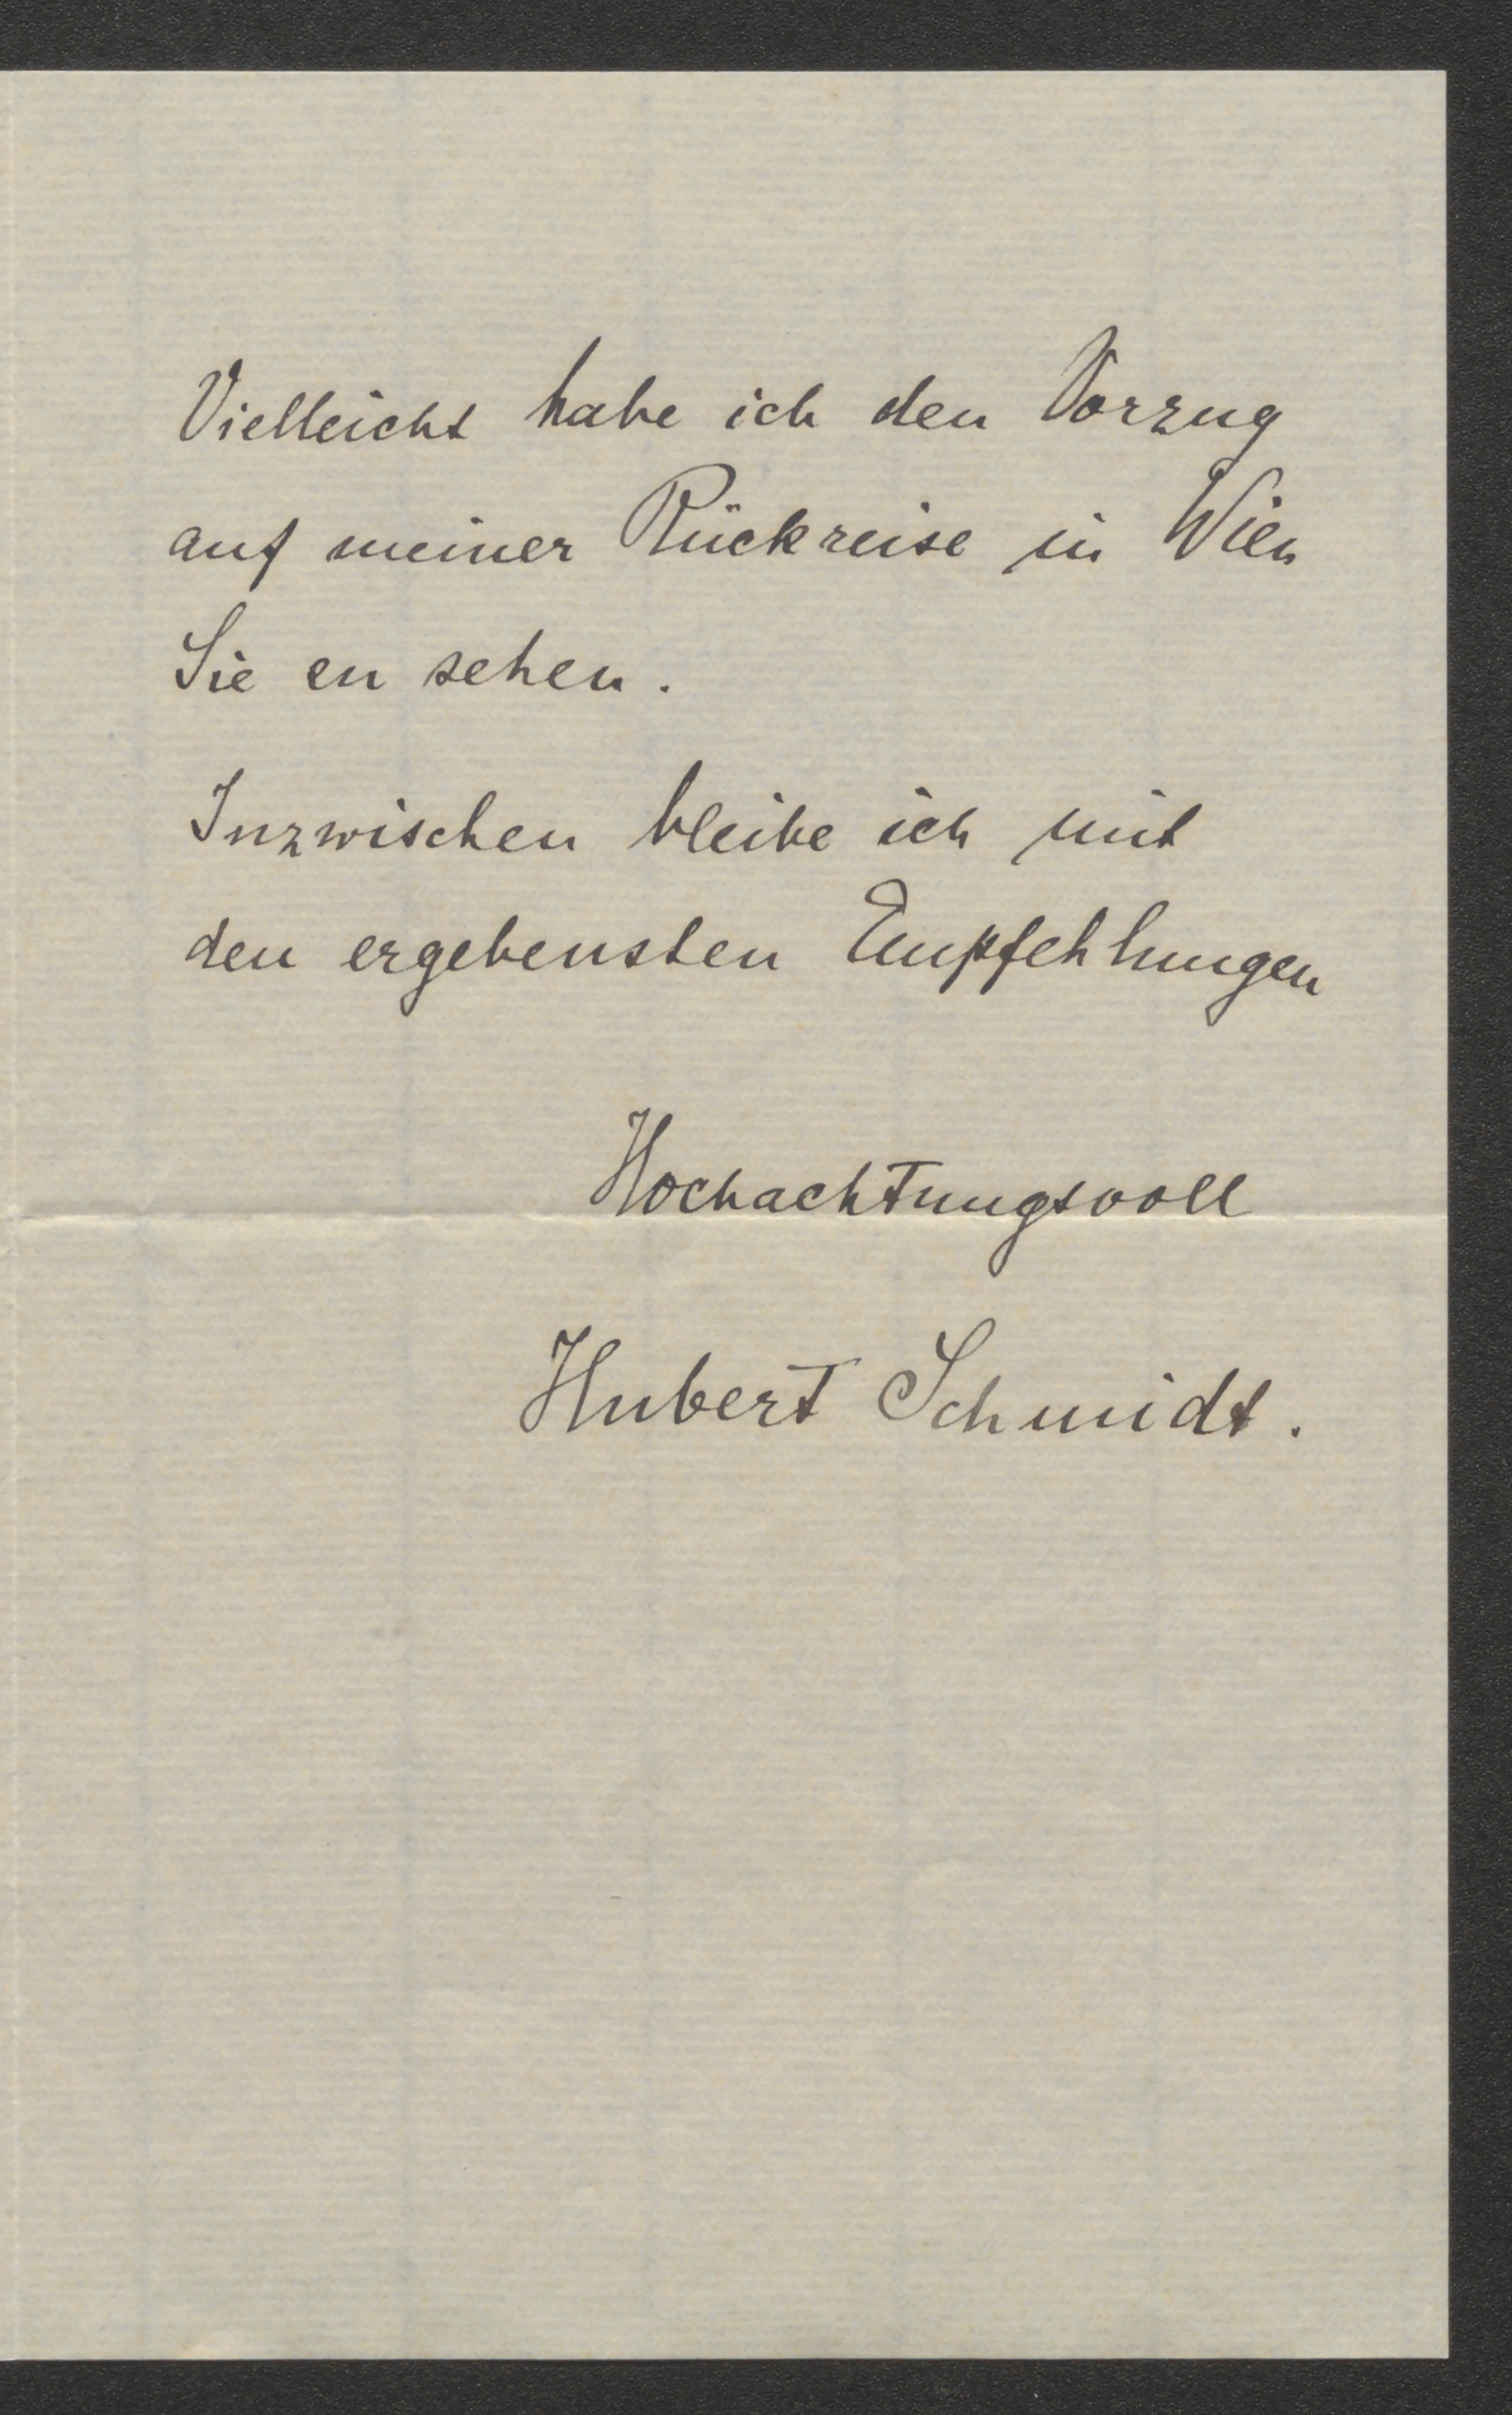 Vielleicht habe ich den Vorzug
auf meiner Rückreise in Wien
Sie en sehen.
Inzwischen bleibe ich mit
den ergebensten Empfehlungen
Hochachtungsvoll
Hubert Schmidt.